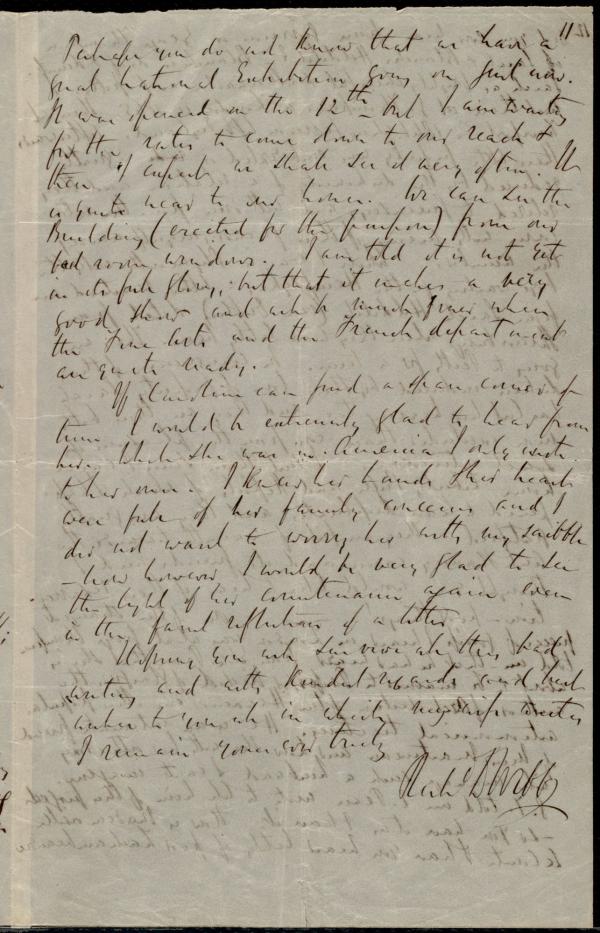 11
Perhaps you do not know that we have a
great National Exhibition going on just now.
It was opened on the 12th - but I am waiting
for the rates to come down to our reach &
then I expect we shall see it very often. It
is quite near to our house. We can see the
Building (erected for the purpose) from our
bed room windows. I am told it is not yet
in its full glory, but that it makes a very
good show and will be much finer when
the Fine Arts and the French department
are quite ready.
If Caroline can find a spare corner of
time I would be extremely glad to hear from
her. While she was in America I only wrote
to her once. I knew her hands & her heart
were full of her family concerns and I
did not want to worry her with my scribble
- now however I would be very glad to see
the light of her countenance again even
in the faint reflection of a letter
Hoping you will survive all this bad
writing and with kindest regards and best
wishes to you all in which
I remain yours ever truly
Richd D Webb